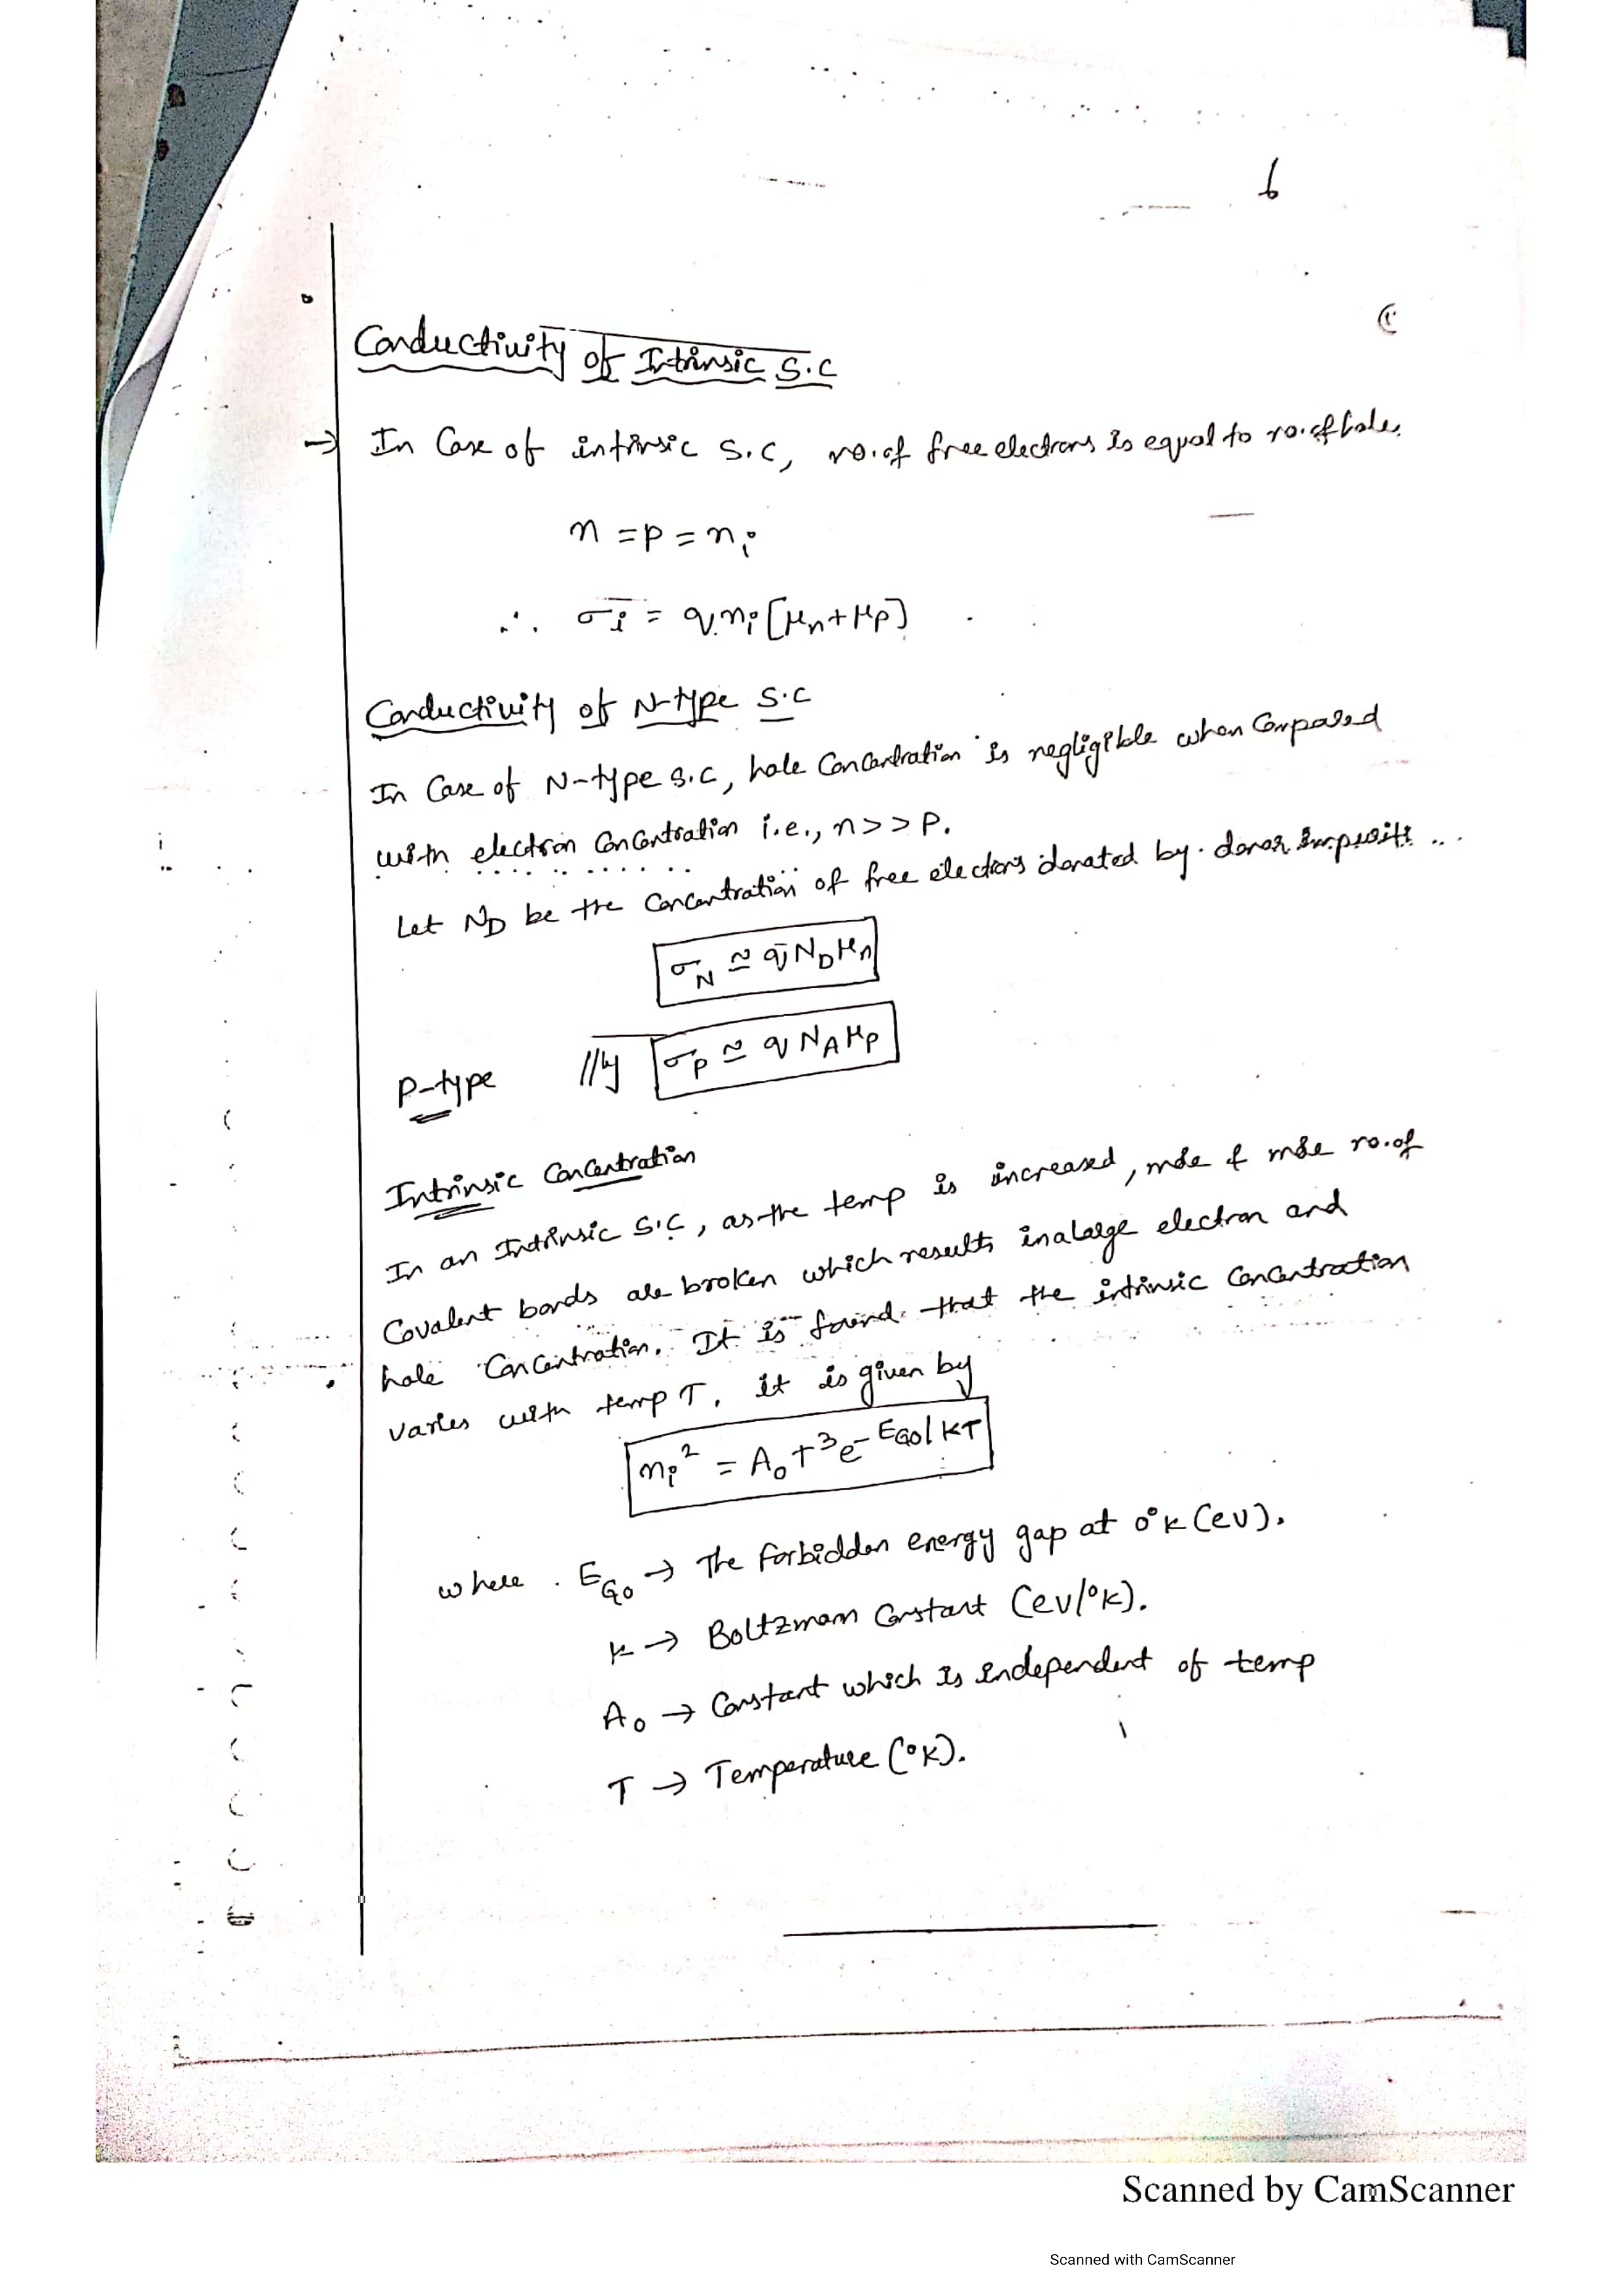 6
Conductivity of Intrinsic S.C
→ In Case of intrinsic S.C, no.of free electrons is equal to no.of holes.
n = p = nᵢ
∴ σᵢ = q nᵢ [μn + μp]
Conductivity of N-type S.C
In Case of N-type S.C, hole Concentration is negligible when Compared
with electron Concentration i.e., n >> p.
Let ND be the Concentration of free electrons donated by donor
σN ≅ q ND μn
P-type |||ly σP ≅ q NA μp
Intrinsic Concentration
In an Intrinsic S.C, as the temp is increased, more & more no.of
Covalent bonds are broken which results in a large electron and
hole Concentration. It is found that the intrinsic Concentration
varies with temp T. it is given by
nᵢ² = A₀ T³ e^-EG0/KT
where EG0 → The Forbidden energy gap at 0°K (eV).
K → Boltzmann Constant (eV/°K).
A₀ → Constant which is independent of temp
T → Temperature (°K).
Scanned by CamScanner
Scanned with CamScanner